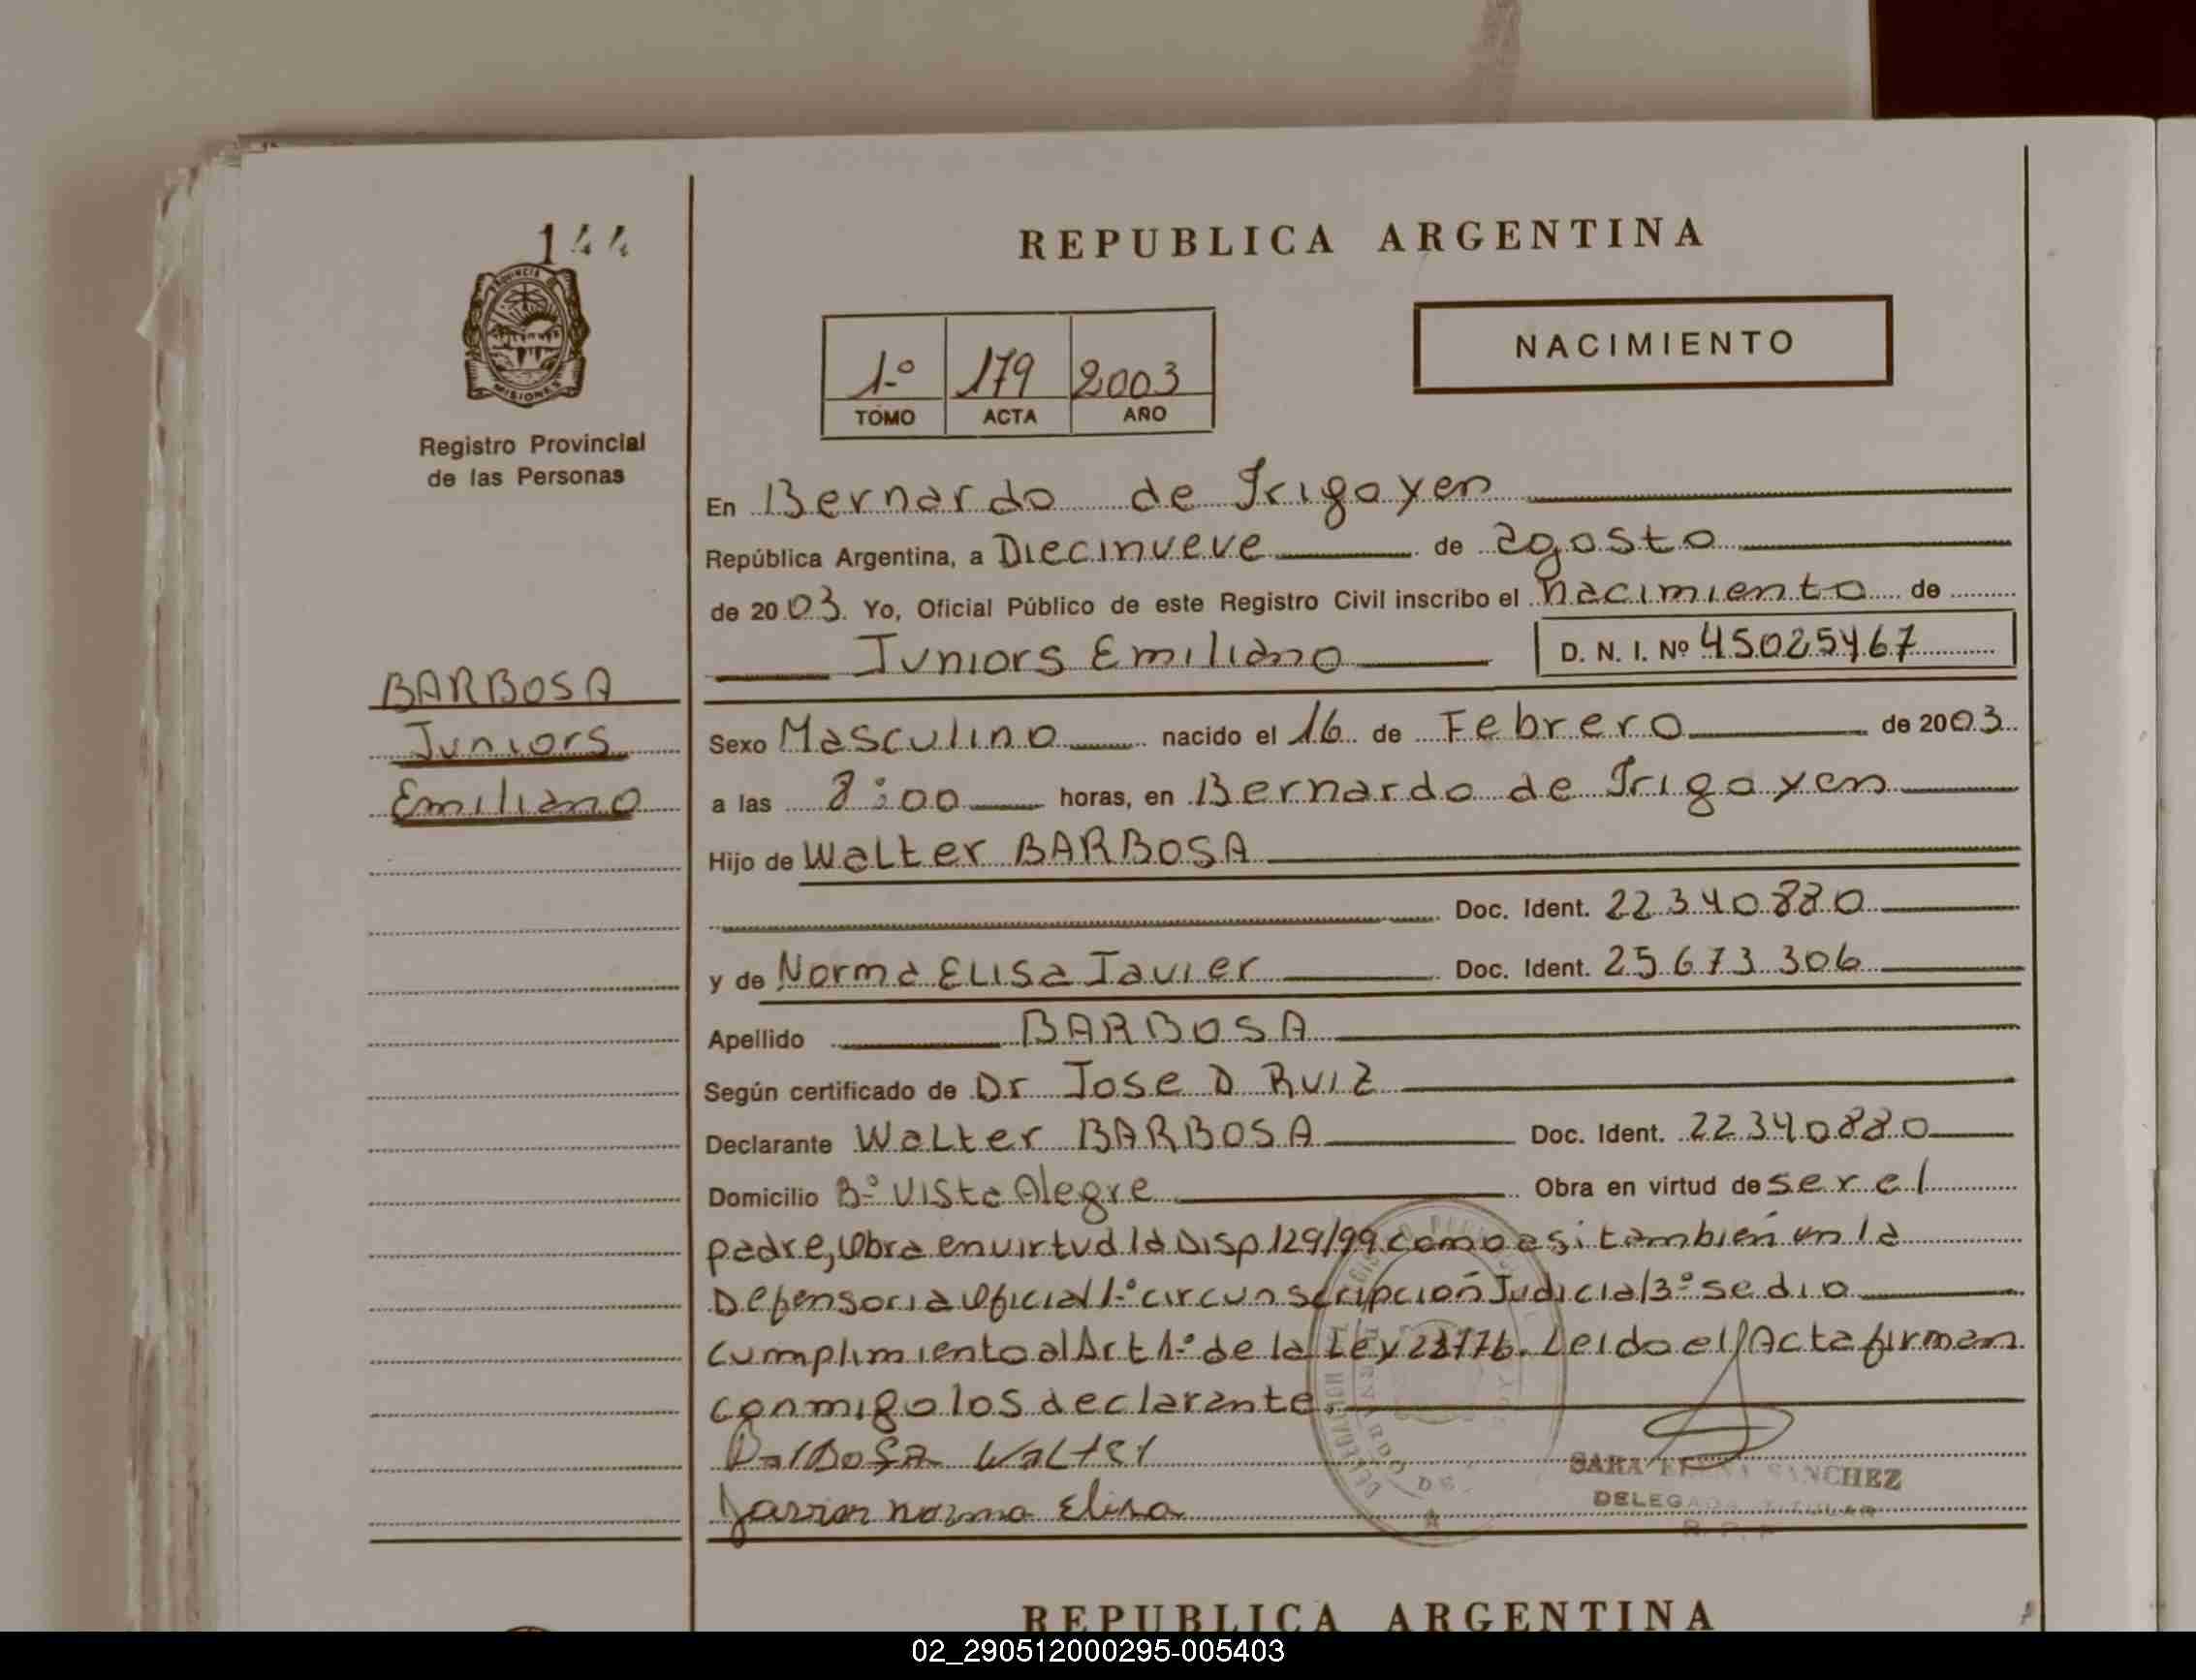 144
PROVINCIA
MISIONES
Registro Provincial
de las Personas
BARBOSA
Juniors
Emiliano
REPUBLICA ARGENTINA
1º 179 2003
TOMO ACTA AÑO
NACIMIENTO
En Bernardo de Irigoyen
República Argentina, a Diecinueve de agosto
de 2003. Yo, Oficial Público de este Registro Civil inscribo el nacimiento de
Juniors Emiliano D. N. I. Nº 45025467
Sexo Masculino nacido el 16 de Febrero de 2003
a las 8:00 horas, en Bernardo de Irigoyen
Hijo de Walter BARBOSA
Doc. Ident. 22340880
y de Norma Elisa Javier Doc. Ident. 25673306
Apellido BARBOSA
Según certificado de Dr Jose D Ruiz
Declarante Walter BARBOSA Doc. Ident. 22340880
Domicilio Bº Vista Alegre Obra en virtud de ser el
padre, Obra en virtud la Disp 129/99 como asi tambien en la
Defensoria Oficial 1º circunscripción Judicial 3º se dio
cumplimiento al Art 1º de la Ley 23776. Leido el Acta firman
conmigo los declarante.
Barbosa Walter
Javier norma Elisa
SARA ELENA SANCHEZ
DELEGADA TITULAR
REPUBLICA ARGENTINA
02_290512000295-005403